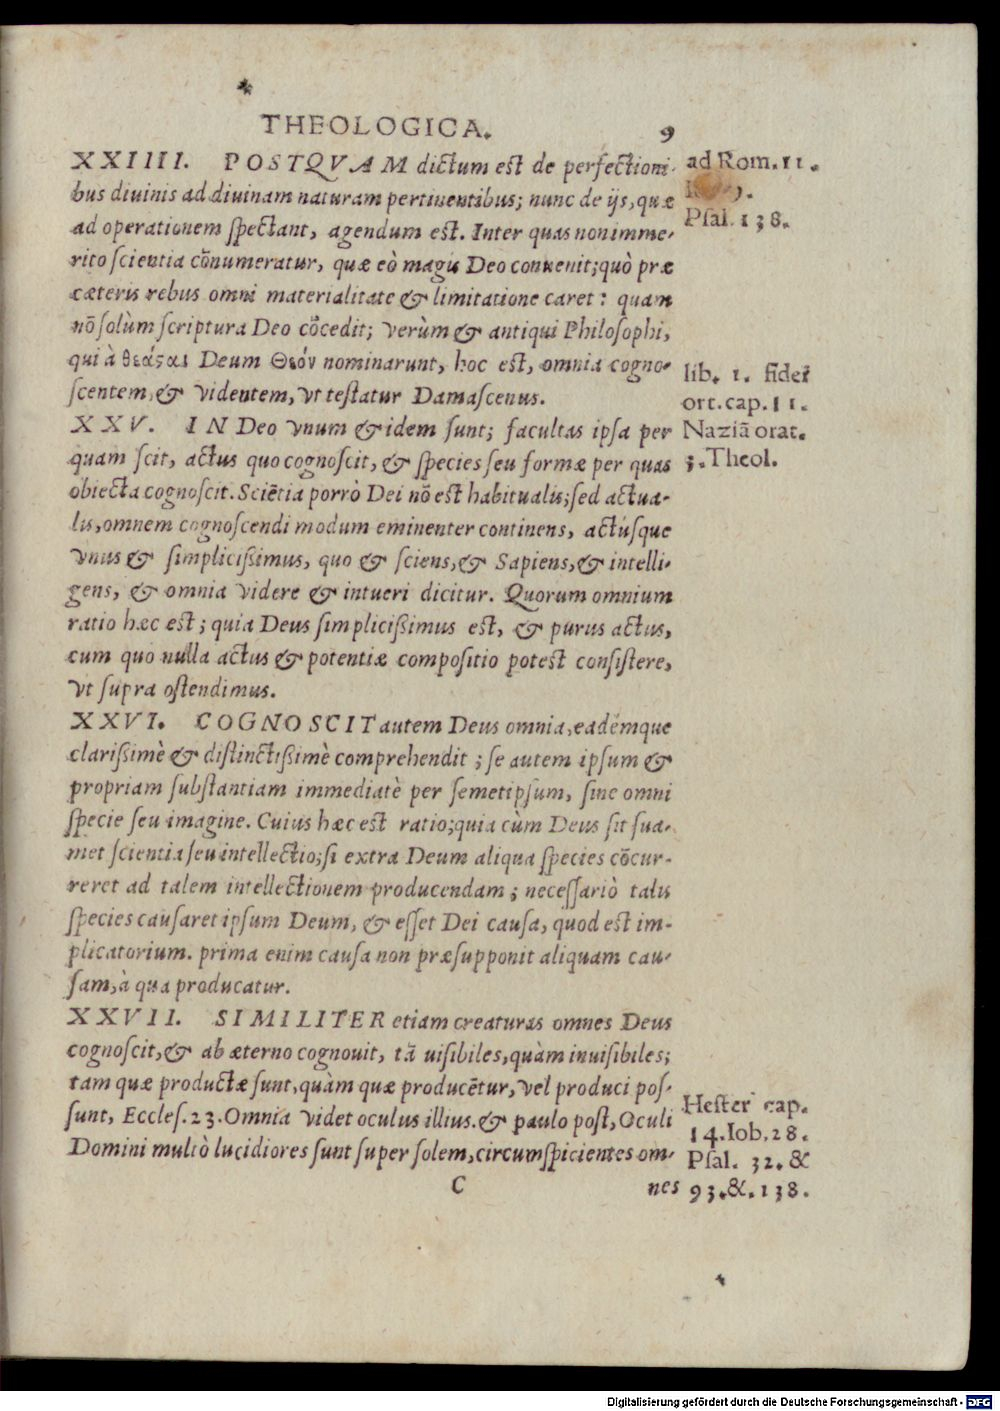 THEOLOGICA. 9
XXIIII. POSTQVAM dictum est de perfectioni-
bus diuinis ad diuinam naturam pertinentibus; nunc de ijs, quæ
ad operationem spectant, agendum est. Inter quas non imme-
rito scientia cōnumeratur, quæ eò magis Deo conuenit; quò præ
cæteris rebus omni materialitate & limitatione caret: quam
nō solùm scriptura Deo cōcedit; verùm & antiqui Philosophi,
qui à θεάςαι Deum Θεόν nominarunt, hoc est, omnia cogno-
scentem, & videntem, vt testatur Damascenus.
ad Rom. 11.
Psal. 138.
lib. 1. fidei
ort. cap. 11.
Naziā orat.
3. Theol.
XXV. IN Deo vnum & idem sunt; facultas ipsa per
quam scit, actus quo cognoscit, & species seu formæ per quas
obiecta cognoscit. Sciētia porrò Dei nō est habitualis; sed actua-
lis, omnem cognoscendi modum eminenter continens, actúsque
vnus & simplicißimus, quo & sciens, & Sapiens, & intelli-
gens, & omnia videre & intueri dicitur. Quorum omnium
ratio hæc est; quia Deus simplicißimus est, & purus actus,
cum quo nulla actus & potentiæ compositio potest consistere,
vt supra ostendimus.
XXVI. COGNOSCIT autem Deus omnia, eadémque
clarißimè & distinctißimè comprehendit; se autem ipsum &
propriam substantiam immediatè per semetipsum, sine omni
specie seu imagine. Cuius hæc est ratio; quia cùm Deus sit sua-
met scientia seu intellectio; si extra Deum aliqua species cōcur-
reret ad talem intellectionem producendam; necessariò talis
species causaret ipsum Deum, & esset Dei causa, quod est im-
plicatorium. prima enim causa non præsupponit aliquam cau-
sam, à qua producatur.
XXVII. SIMILITER etiam creaturas omnes Deus
cognoscit, & ab æterno cognouit, tā uisibiles, quàm inuisibiles;
tam quæ productæ sunt, quàm quæ producētur, vel produci pos-
sunt, Eccles. 23. Omnia videt oculus illius. & paulo post, Oculi
Domini multò lucidiores sunt super solem, circumspicientes om-
Hester cap.
14. Iob. 28.
Psal. 32. &
93. & 138.
C nes
Digitalisierung gefördert durch die Deutsche Forschungsgemeinschaft - DFG